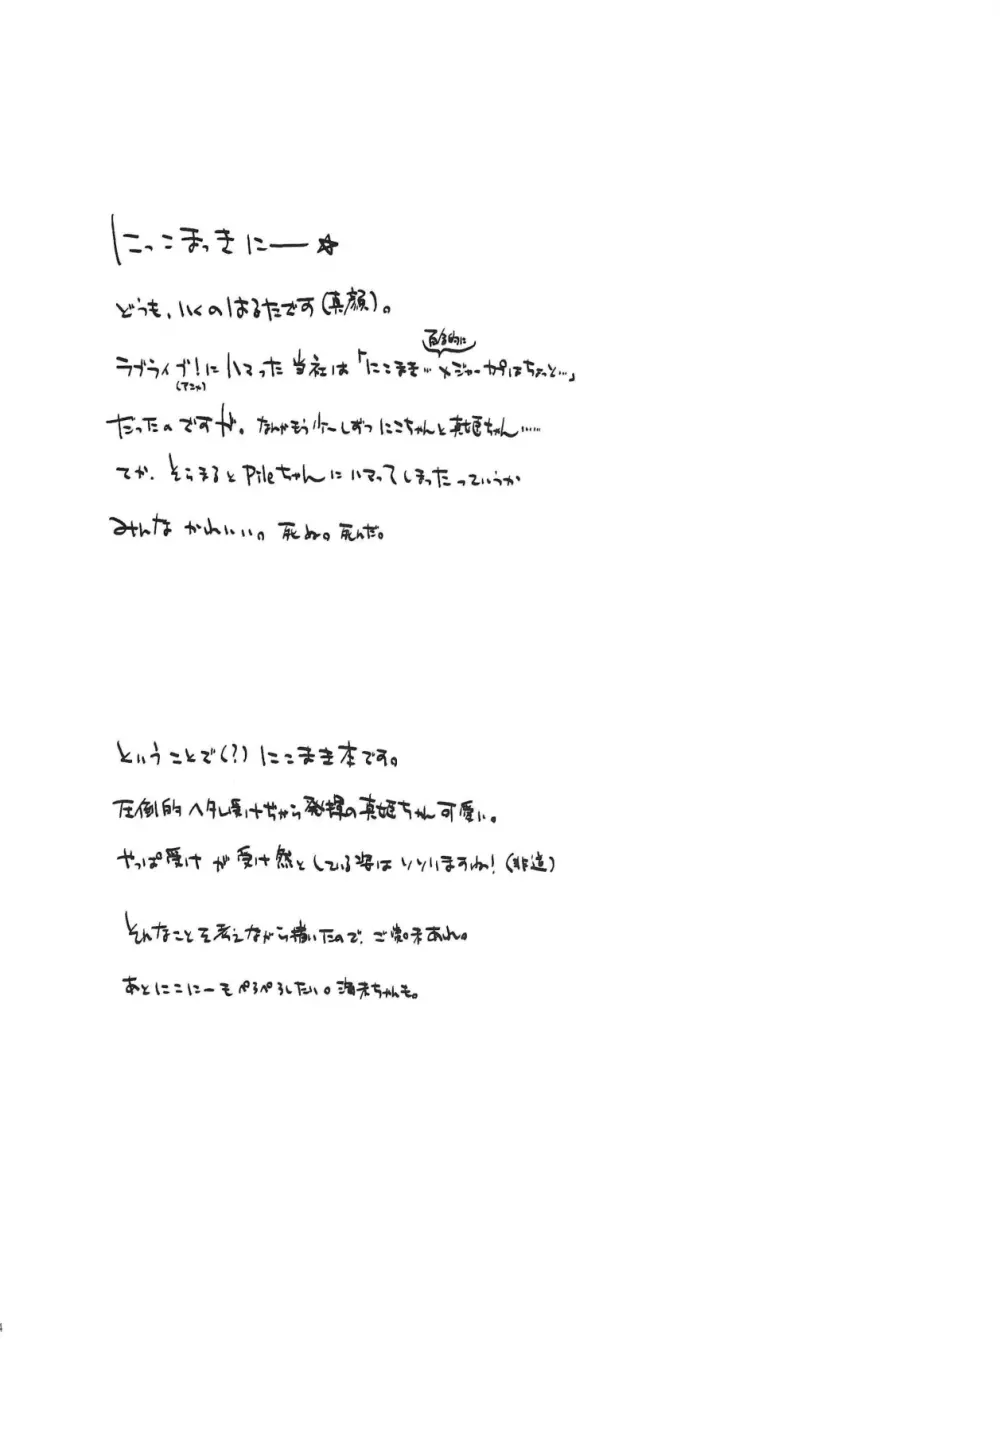 にっこまっきにー☆
どうも、いくのはるたです(真顔)。
百合的に
ラブライブ!にハマった当社は「にこまき…メジャーカプはちょっと…」
(アニメ)
だったのですが、なんかもう少ーしずつにこちゃんと真姫ちゃん……
てか、そらまるとPileちゃんにハマってしまったっていうか
みんなかわいい。死ぬ。死んだ。
ということで(?)にこまき本です。
圧倒的ヘタレ受けぢから発揮の真姫ちゃん可愛い。
やっぱ受けが受け然としている姿はいいいますね!(非道)
そんなことを考えながら描いたので、ご覧あれ。
あとにこにーもぺろぺろしたい。海未ちゃんも。